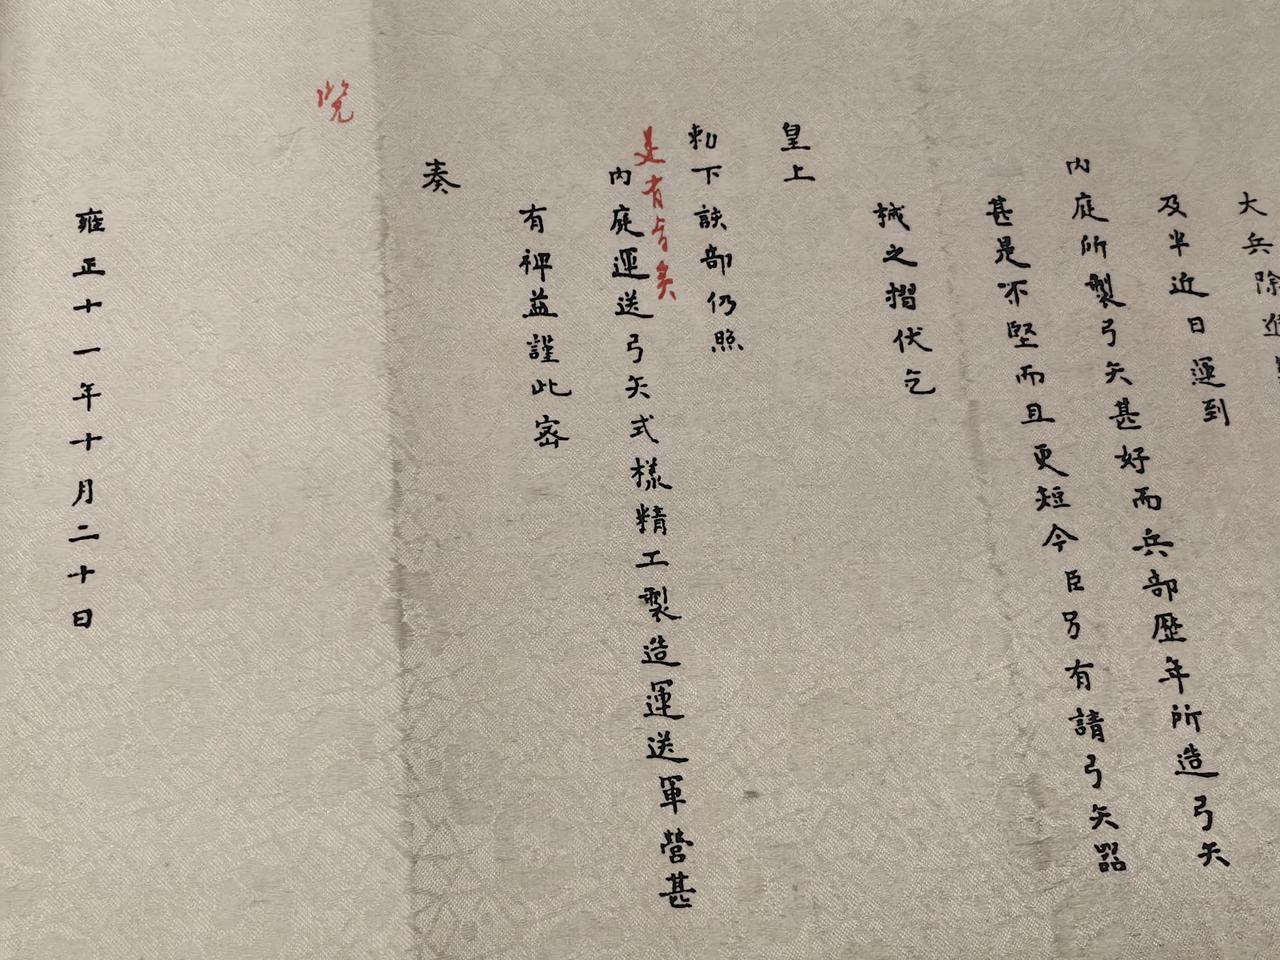 大兵除進
及半近日運到
內庭所製弓矢甚好而兵部歷年所造弓矢
甚是不堅而且更短今臣另有請弓矢器
械之摺伏乞
皇上
勅下該部仍照
是有旨矣
內庭運送弓矢式樣精工製造運送軍營甚
有裨益謹此密
奏
覽
雍正十一年十月二十日